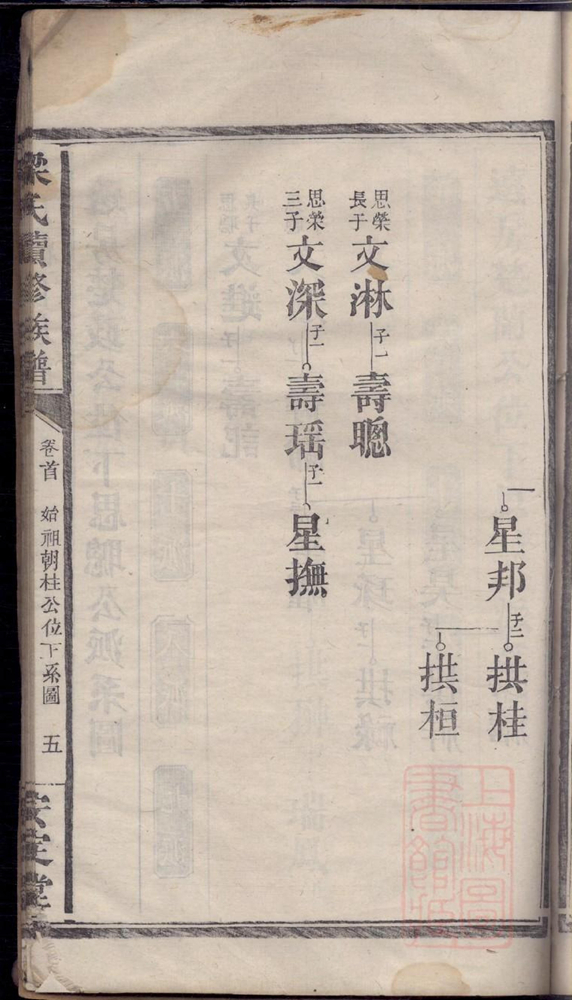 星邦子二拱桂
拱桓
思榮長子文淋子一壽聰
思榮三子文深子一壽瑶子一星撫
梁氏續修族譜
卷首 始祖朝桂公位下系圖 五
安定堂
上海圖書館藏